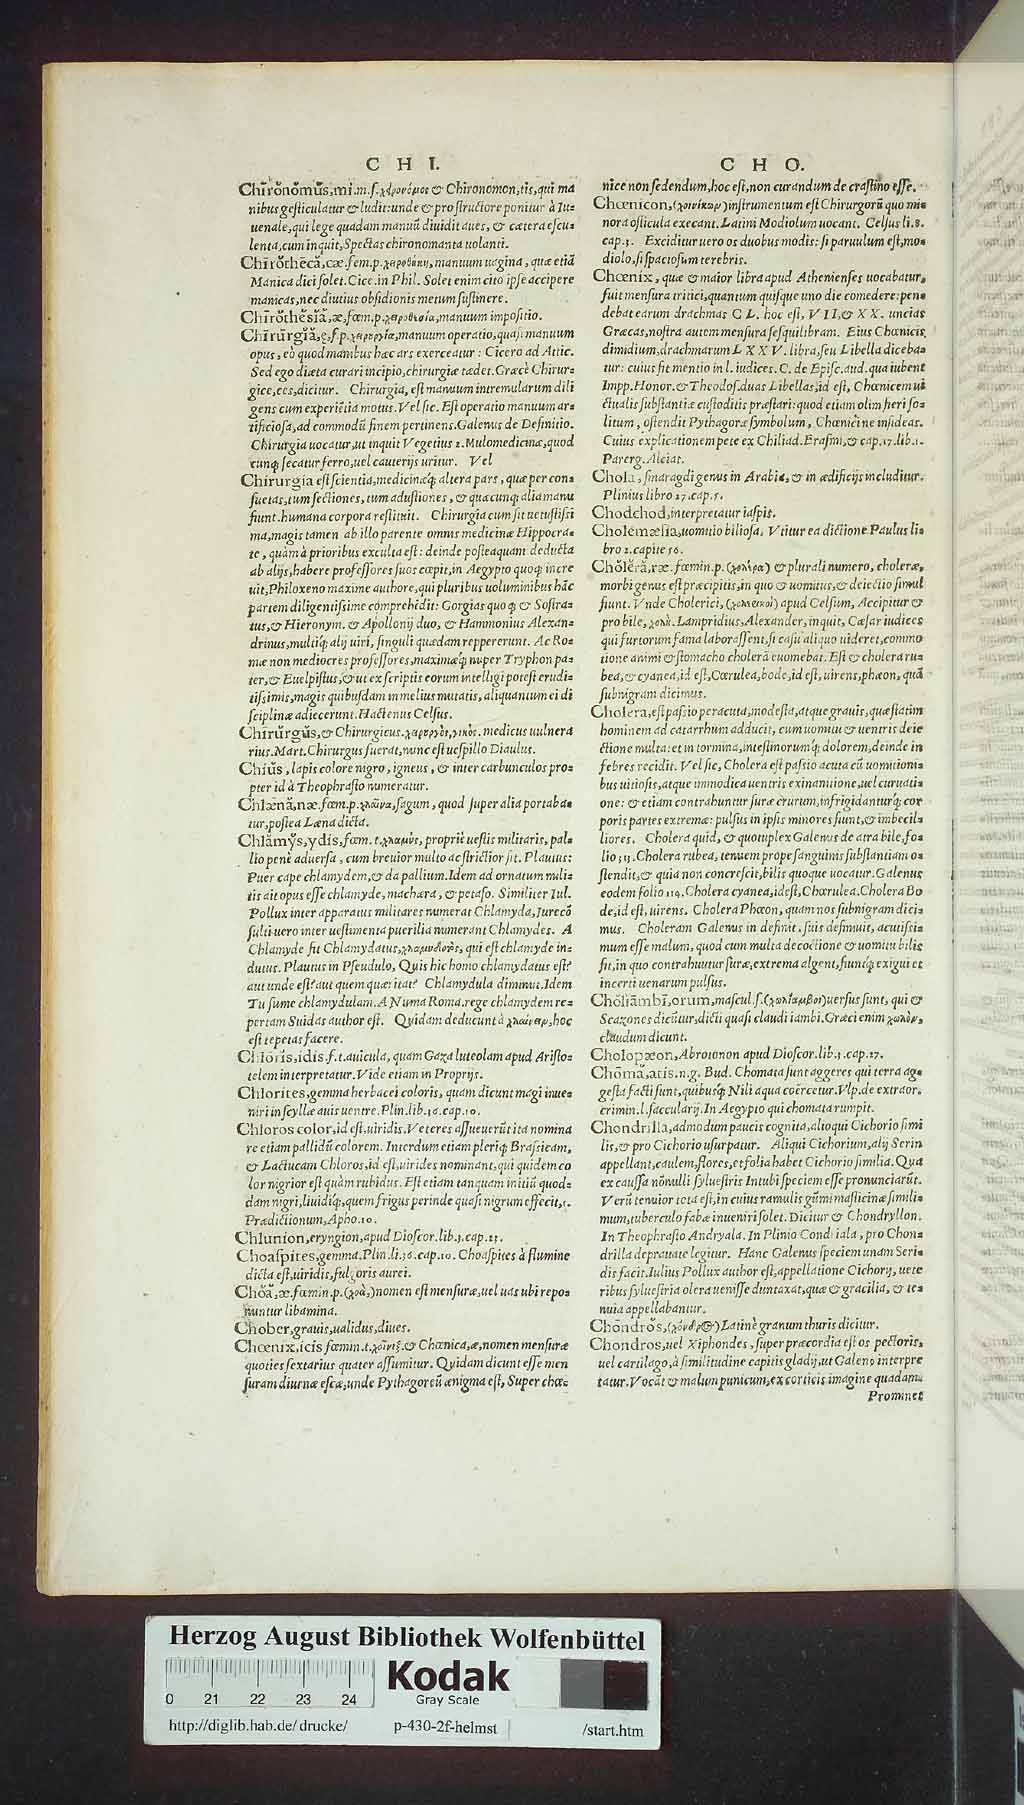 C H I.
Chīrŏnŏmŭs, mi. m. s. χειρονόμος & Chironomon, tis, qui ma
nibus gesticulatur & ludit: unde & pro structore ponitur à Iu=
uenale, qui lege quadam manuũ diuidit aues, & cætera escu=
lenta, cum inquit, Spectas chironomanta uolanti.
Chīrŏthēcă, cæ. fem. p. χειροθήκη, manuum uagina, quæ etiã
Manica dici solet. Cice. in Phil. Solet enim cito ipse accipere
manicas, nec diutius obsidionis metum sustinere.
Chīrŏthĕsĭă, æ, fœm. p. χειροθεσία, manuum impositio.
Chīrūrgĭă, ę, f. p. χειρουργία, manuum operatio, quasi manuum
opus, eò quod manibus hæc ars exerceatur: Cicero ad Attic.
Sed ego diæta curari incipio, chirurgiæ tædet. Græcè Chirur=
gice, ces, dicitur. Chirurgia, est manuum intremularum dili
gens cum experiẽtia motus. Vel sic. Est operatio manuum ar=
tificiosa, ad commodũ finem pertinens. Galenus de Definitio.
Chirurgia uocatur, ut inquit Vegetius 2. Mulomedicinæ, quod
cunq; secatur ferro, uel cauterijs uritur. Vel
Chirurgia est scientia, medicinæq; altera pars, quæ per con=
suetas, tum sectiones, tum adustiones, & quæcunq; alia manu
fiunt. humana corpora restituit. Chirurgia cum sit uetustissi
ma, magis tamen ab illo parente omnis medicinæ Hippocra=
te, quàm à prioribus exculta est: deinde posteaquam deducta
ab alijs, habere professores suos cœpit, in Aegypto quoq; incre
uit, Philoxeno maxime authore, qui pluribus uoluminibus hãc
partem diligentissime comprehẽdit: Gorgias quoq; & Sostra=
tus, & Hieronym. & Apollonij duo, & Hammonius Alexan=
drinus, multiq; alij uiri, singuli quædam reppererunt. Ac Ro=
mæ non mediocres professores, maximeq; nuper Tryphon pa=
ter, & Euelpistus, & ut ex scriptis eorum intelligi potest erudi=
tissimis, magis quibusdam in melius mutatis, aliquantum ei di
sciplinæ adiecerunt. Hactenus Celsus.
Chīrūrgŭs, & Chirurgicus. χειρουργὸς, γικὸς. medicus uulnera
rius. Mart. Chirurgus fuerat, nunc est uespillo Diaulus.
Chĭŭs, lapis colore nigro, igneus, & inter carbunculos pro=
pter id à Theophrasto numeratur.
Chlænă, næ. fœm. p. χλαῖνα, sagum, quod super alia portaba=
tur, postea Læna dicta.
Chlămy̆s, ydis, fœm. t. χλαμὺς, propriè uestis militaris, pal=
lio penè aduersa, cum breuior multo ac strictior sit. Plautus:
Puer cape chlamydem, & da pallium. Idem ad ornatum mili=
tis ait opus esse chlamyde, machæra, & petaso. Similiter Iul.
Pollux inter apparatus militares numerat Chlamyda, Iurecõ
sulti uero inter uestimenta puerilia numerant Chlamydes. A
Chlamyde fit Chlamydatus, χλαμυδωτὸς, qui est chlamyde in=
dutus. Plautus in Pseudulo, Quis hic homo chlamydatus est?
aut unde est? aut quem quæritat? Chlamydula diminut. Idem
Tu sume chlamydulam. A Numa Roma. rege chlamydem re=
pertam Suidas author est. Quidam deducunt à χλιαίνειν, hoc
est tepetas facere.
Chlōrĭs, idis. f. t. auicula, quam Gaza luteolam apud Aristo=
telem interpretatur. Vide etiam in Proprijs.
Chlorites, gemma herbacei coloris, quam dicunt magi inue=
niri in scyllæ auis uentre. Plin. lib. 10. cap. 10.
Chloros color, id est, uiridis. Veteres assueuerũt ita nomina
re etiam pallidũ colorem. Interdum etiam pleriq; Brassicam,
& Lactucam Chloros, id est, uirides nominant, qui quidem co
lor nigrior est quàm rubidus. Est etiam tanquam initiũ quod=
dam nigri, liuidiq;, quem frigus perinde quasi nigrum effecit, 1.
Prædictionum, Apho. 10.
Chlunion, eryngion, apud Dioscor. lib. 3. cap. 21.
Choaspites, gemma. Plin. li. 36. cap. 10. Choaspites à flumine
dicta est, uiridis, fulgoris aurei.
Chŏă, æ. fœmin. p. (χοὰ,) nomen est mensuræ, uel uas ubi repo=
nuntur libamina.
Chober, grauis, ualidus, diues.
Chœnix, icis fœmin. t. χοῖνιξ. & Chœnica, æ, nomen mensuræ
quoties sextarius quater assumitur. Quidam dicunt esse men
suram diurnæ escæ, unde Pythagoreũ ænigma est, Super chœ=
C H O.
nice non sedendum, hoc est, non curandum de crastino esse.
Chœnicon, (χοινίκων) instrumentum est Chirurgorũ quo mi=
nora ossicula execant. Latini Modiolum uocant. Celsus li. 8.
cap. 3. Exciditur uero os duobus modis: si paruulum est, mo=
diolo, si spaciosum terebris.
Chœnix, quæ & maior libra apud Athenienses uocabatur,
fuit mensura tritici, quantum quisque uno die comedere: pen=
debat earum drachmas C L. hoc est, V I I, & X X. uncias
Græcas, nostra autem mensura sesquilibram. Eius Chœnicis
dimidium, drachmarum L X X V. libra, seu Libella diceba=
tur: cuius fit mentio in l. iudices. C. de Episc. aud. qua iubent
Impp. Honor. & Theodos. duas Libellas, id est, Chœnicem ui
ctualis substantiæ custoditis præstari: quod etiam olim fieri so=
litum, ostendit Pythagoræ symbolum, Chœnici ne insideas.
Cuius explicationem pete ex Chiliad. Erasmi, & cap. 17. lib. 1.
Parerg. Alciat.
Chola, smaragdi genus in Arabia, & in ædificijs includitur.
Plinius libro 27. cap. 5.
Chodchod, interpretatur iaspit.
Cholēmæsĭa, uomitio biliosa, Vtitur ea dictione Paulus li=
bro 2. capite 56.
Chŏlĕră, ræ. fœmin. p. (χολέρα) & plurali numero, choleræ,
morbi genus est præcipitis, in quo & uomitus, & deiectio simul
fiunt. Vnde Cholerici, (χολερικοὶ) apud Celsum, Accipitur &
pro bile, χολὴ. Lampridius, Alexander, inquit, Cæsar iudices
qui furtorum fama laborassent, si casu aliquo uideret, commo
tione animi & stomacho cholerã euomebat. Est & cholera ru=
bea, & cyanea, id est, Cœrulea, bode, id est, uirens, phæon, quã
subnigram dicimus.
Cholera, est passio peracuta, modesta, atque grauis, quæ statim
hominem ad catarrhum adducit, cum uomitu & uentris deie
ctione multa: et in tormina, intestinorumq; dolorem, deinde in
febres recidit. Vel sic, Cholera est passio acuta cũ uomitioni=
bus uitiosis, atque immodica uentris exinanitione, uel curuati=
one: & etiam contrahuntur suræ crurum, infrigidanturq; cor
poris partes extremæ: pulsus in ipsis minores fiunt, & imbecil=
liores. Cholera quid, & quotuplex Galenus de atra bile, fo=
lio 513. Cholera rubea, tenuem prope sanguinis substantiam o=
stendit, & quia non concrescit, bilis quoque uocatur. Galenus
eodem folio 114. Cholera cyanea, id est, Chœrulea. Cholera Bo
de, id est, uirens. Cholera Phœon, quam nos subnigram dici=
mus. Choleram Galenus in definit. suis definiuit, acutissi=
mum esse malum, quod cum multa decoctione & uomitu bilis
fit, in quo contrahuntur suræ, extrema algent, fiuntq; exigui et
incerti uenarum pulsus.
Chŏlĭāmbī, orum, mascul. s. (χωλίαμβοι) uersus sunt, qui &
Scazones dicũtur, dicti quasi claudi iambi. Græci enim χωλὸν,
claudum dicunt.
Cholopæon, Abrotonon apud Dioscor. lib. 3. cap. 27.
Chōmă, atis. n. g. Bud. Chomata sunt aggeres qui terra ag=
gesta facti sunt, quibusq; Nili aqua coërcetur. Vlp. de extraor.
crimin. l. saccularij. In Aegypto qui chomata rumpit.
Chondrilla, admodum paucis cognita, alioqui Cichorio simi
lis, & pro Cichorio usurpatur. Aliqui Cichorium, alij Serin
appellant, caulem, flores, et folia habet Cichorio similia. Qua
ex causa nõnulli syluestris Intubi speciem esse pronunciarũt.
Verũ tenuior tota est, in cuius ramulis gũmi masticinæ simili=
mum, tuberculo fabæ inueniri solet. Dicitur & Chondryllon.
In Theophrasto Andryala. In Plinio Condiala, pro Chon=
drilla deprauate legitur. Hanc Galenus speciem unam Seri=
dis facit. Iulius Pollux author est, appellatione Cichorij, uete
ribus syluestria olera uenisse duntaxat, quæ & gracilia, & te=
nuia appellabantur.
Chōndrŏs, (χόνδρος) Latinè granum thuris dicitur.
Chondros, uel Xiphondes, super præcordia est os pectoris,
uel cartilago, à similitudine capitis gladij, ut Galeno interpre
tatur. Vocãt & malum punicum, ex corticis imagine quadam.
Prominet
Herzog August Bibliothek Wolfenbüttel
0 21 22 23 24
Kodak
Gray Scale
http://diglib.hab.de/drucke/ p-430-2f-helmst /start.htm